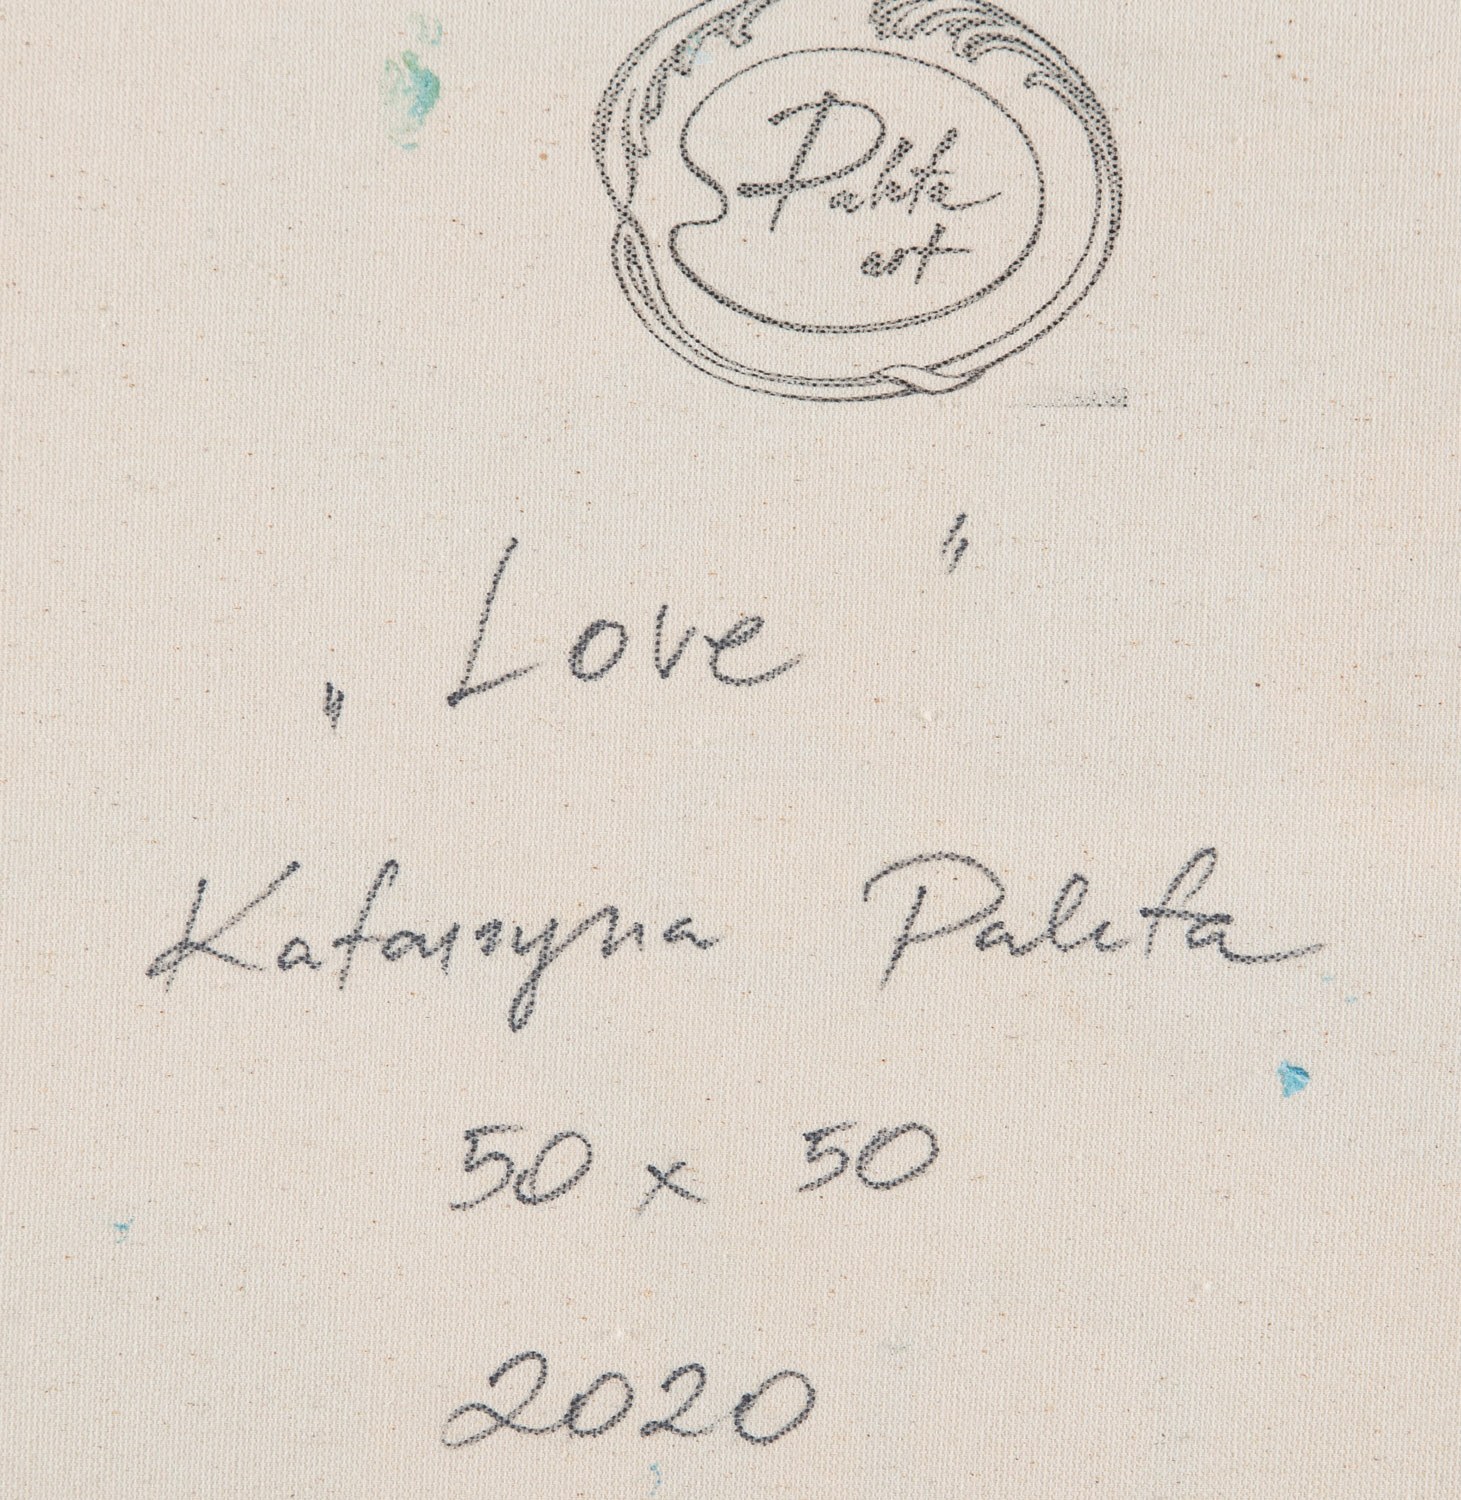 Pakta
art
„ Love "
Katarzyna Pakta
50 x 50
2020